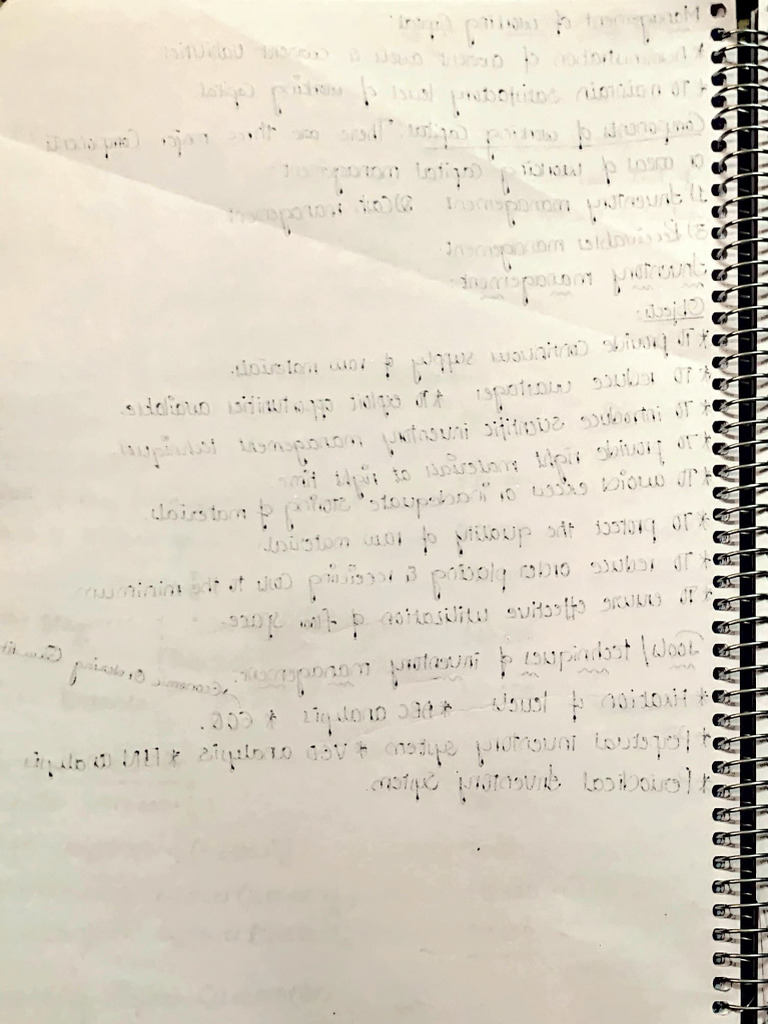 Management of working Capital:
* Determination of current assets & current liabilities
* To maintain satisfactory level of working capital
Components of working Capital: There are three major Components
or areas of working Capital management
1) Inventory management 2) Cash management
3) Receivables management.
Inventory management:
Objects:
* To provide continuous supply of raw materials.
* To reduce wastages * To exploit opportunities available.
* To introduce scientific inventory management techniques
* To provide right materials at right time
* To avoid excess or inadequate storing of materials.
* To protect the quality of raw material.
* To reduce order placing & receiving Costs to the minimum
* To ensure effective utilization of floor space.
Tools/techniques of inventory management:
Economic Ordering Quantity
* Fixation of levels * ABC analysis * EOQ.
* Perpetual inventory system * VED analysis * analysis
* Periodical Inventory System.